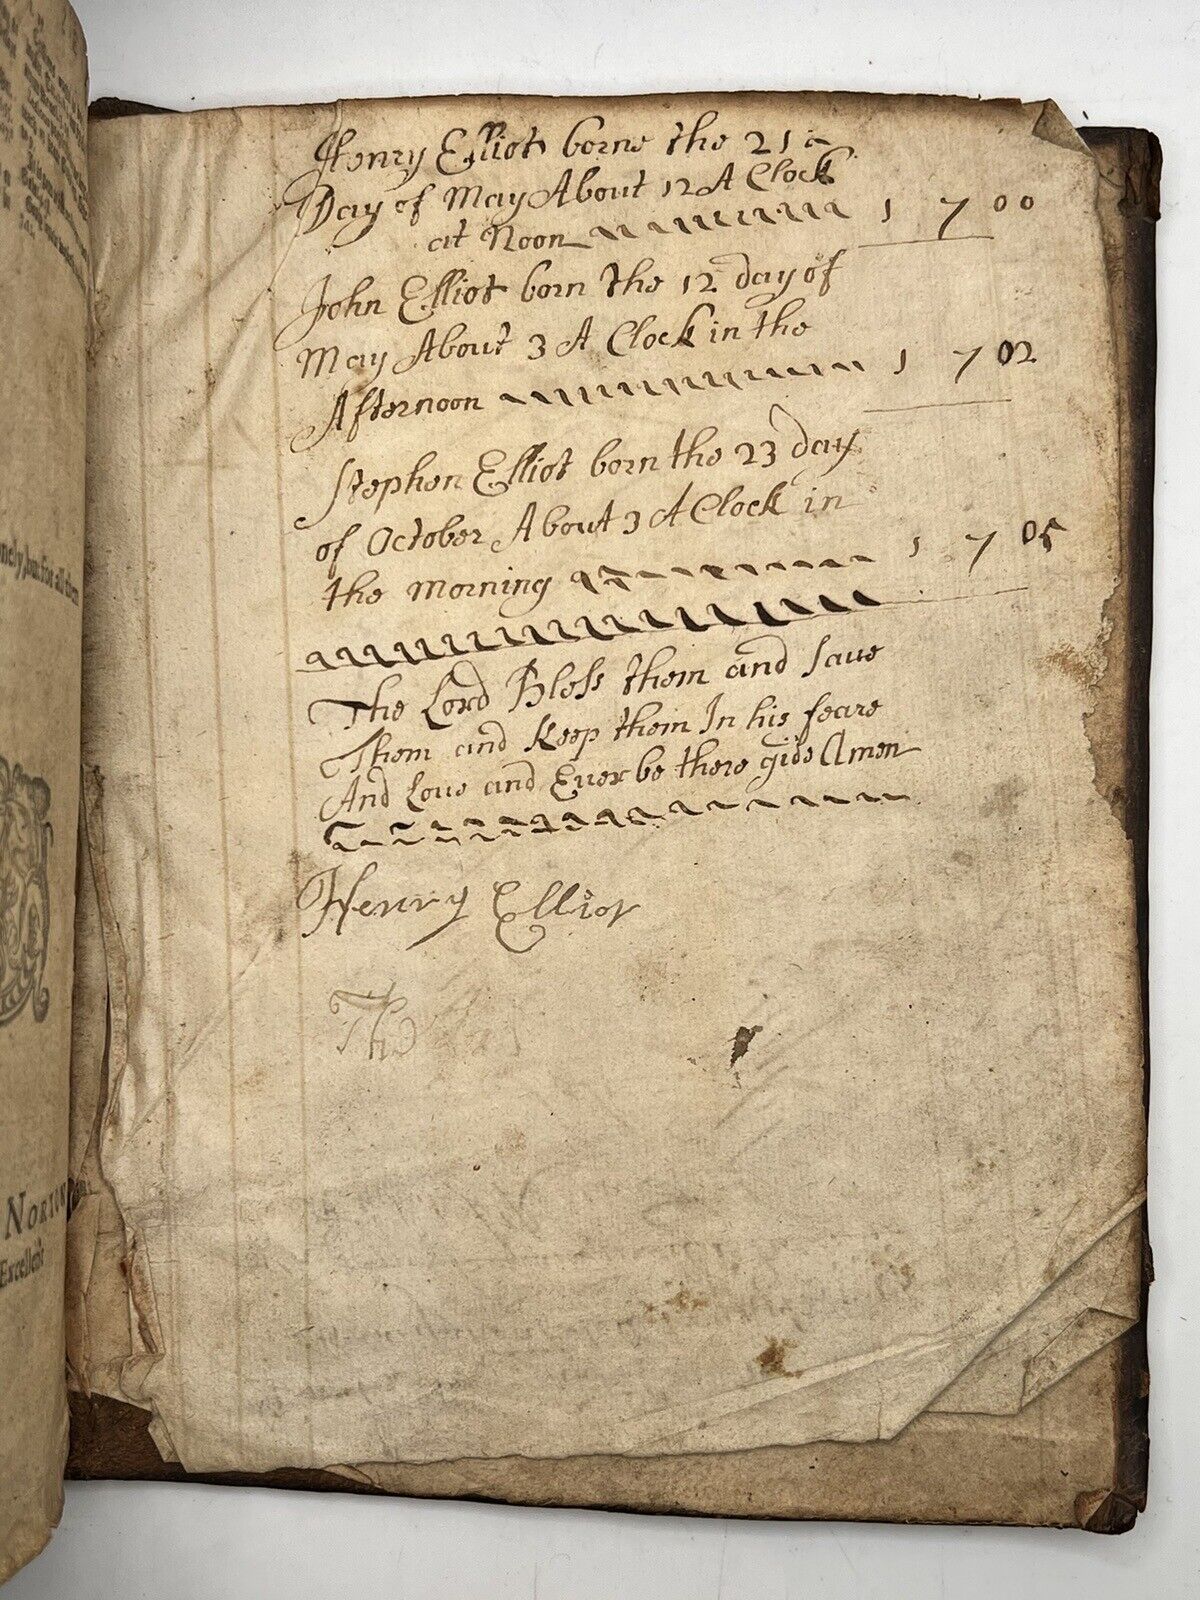 Henry Elliot borne the 21 a
Day of May About 12 A Clock
at Noon 1 7 00
John Elliot born the 12 day of
May About 3 A Clock in the
Afternoon 1 7 02
Stephen Elliot born the 23 day
of October About 3 A Clock in
the Morning 1 7 05
The Lord Bless them and save
Them and Keep them In his feare
And Love and Ever be there gide Amen
Henry Elliot
The
nely, but for all
NORTON
Excellent